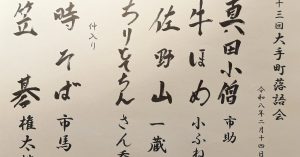 十三回大手町落語会
令和八年二月十四日
真田小僧 市助
牛ほめ 小ふね
佐野山 一蔵
ちりとてちん さん喬
仲入り
時そば 市馬
笠碁 権太楼